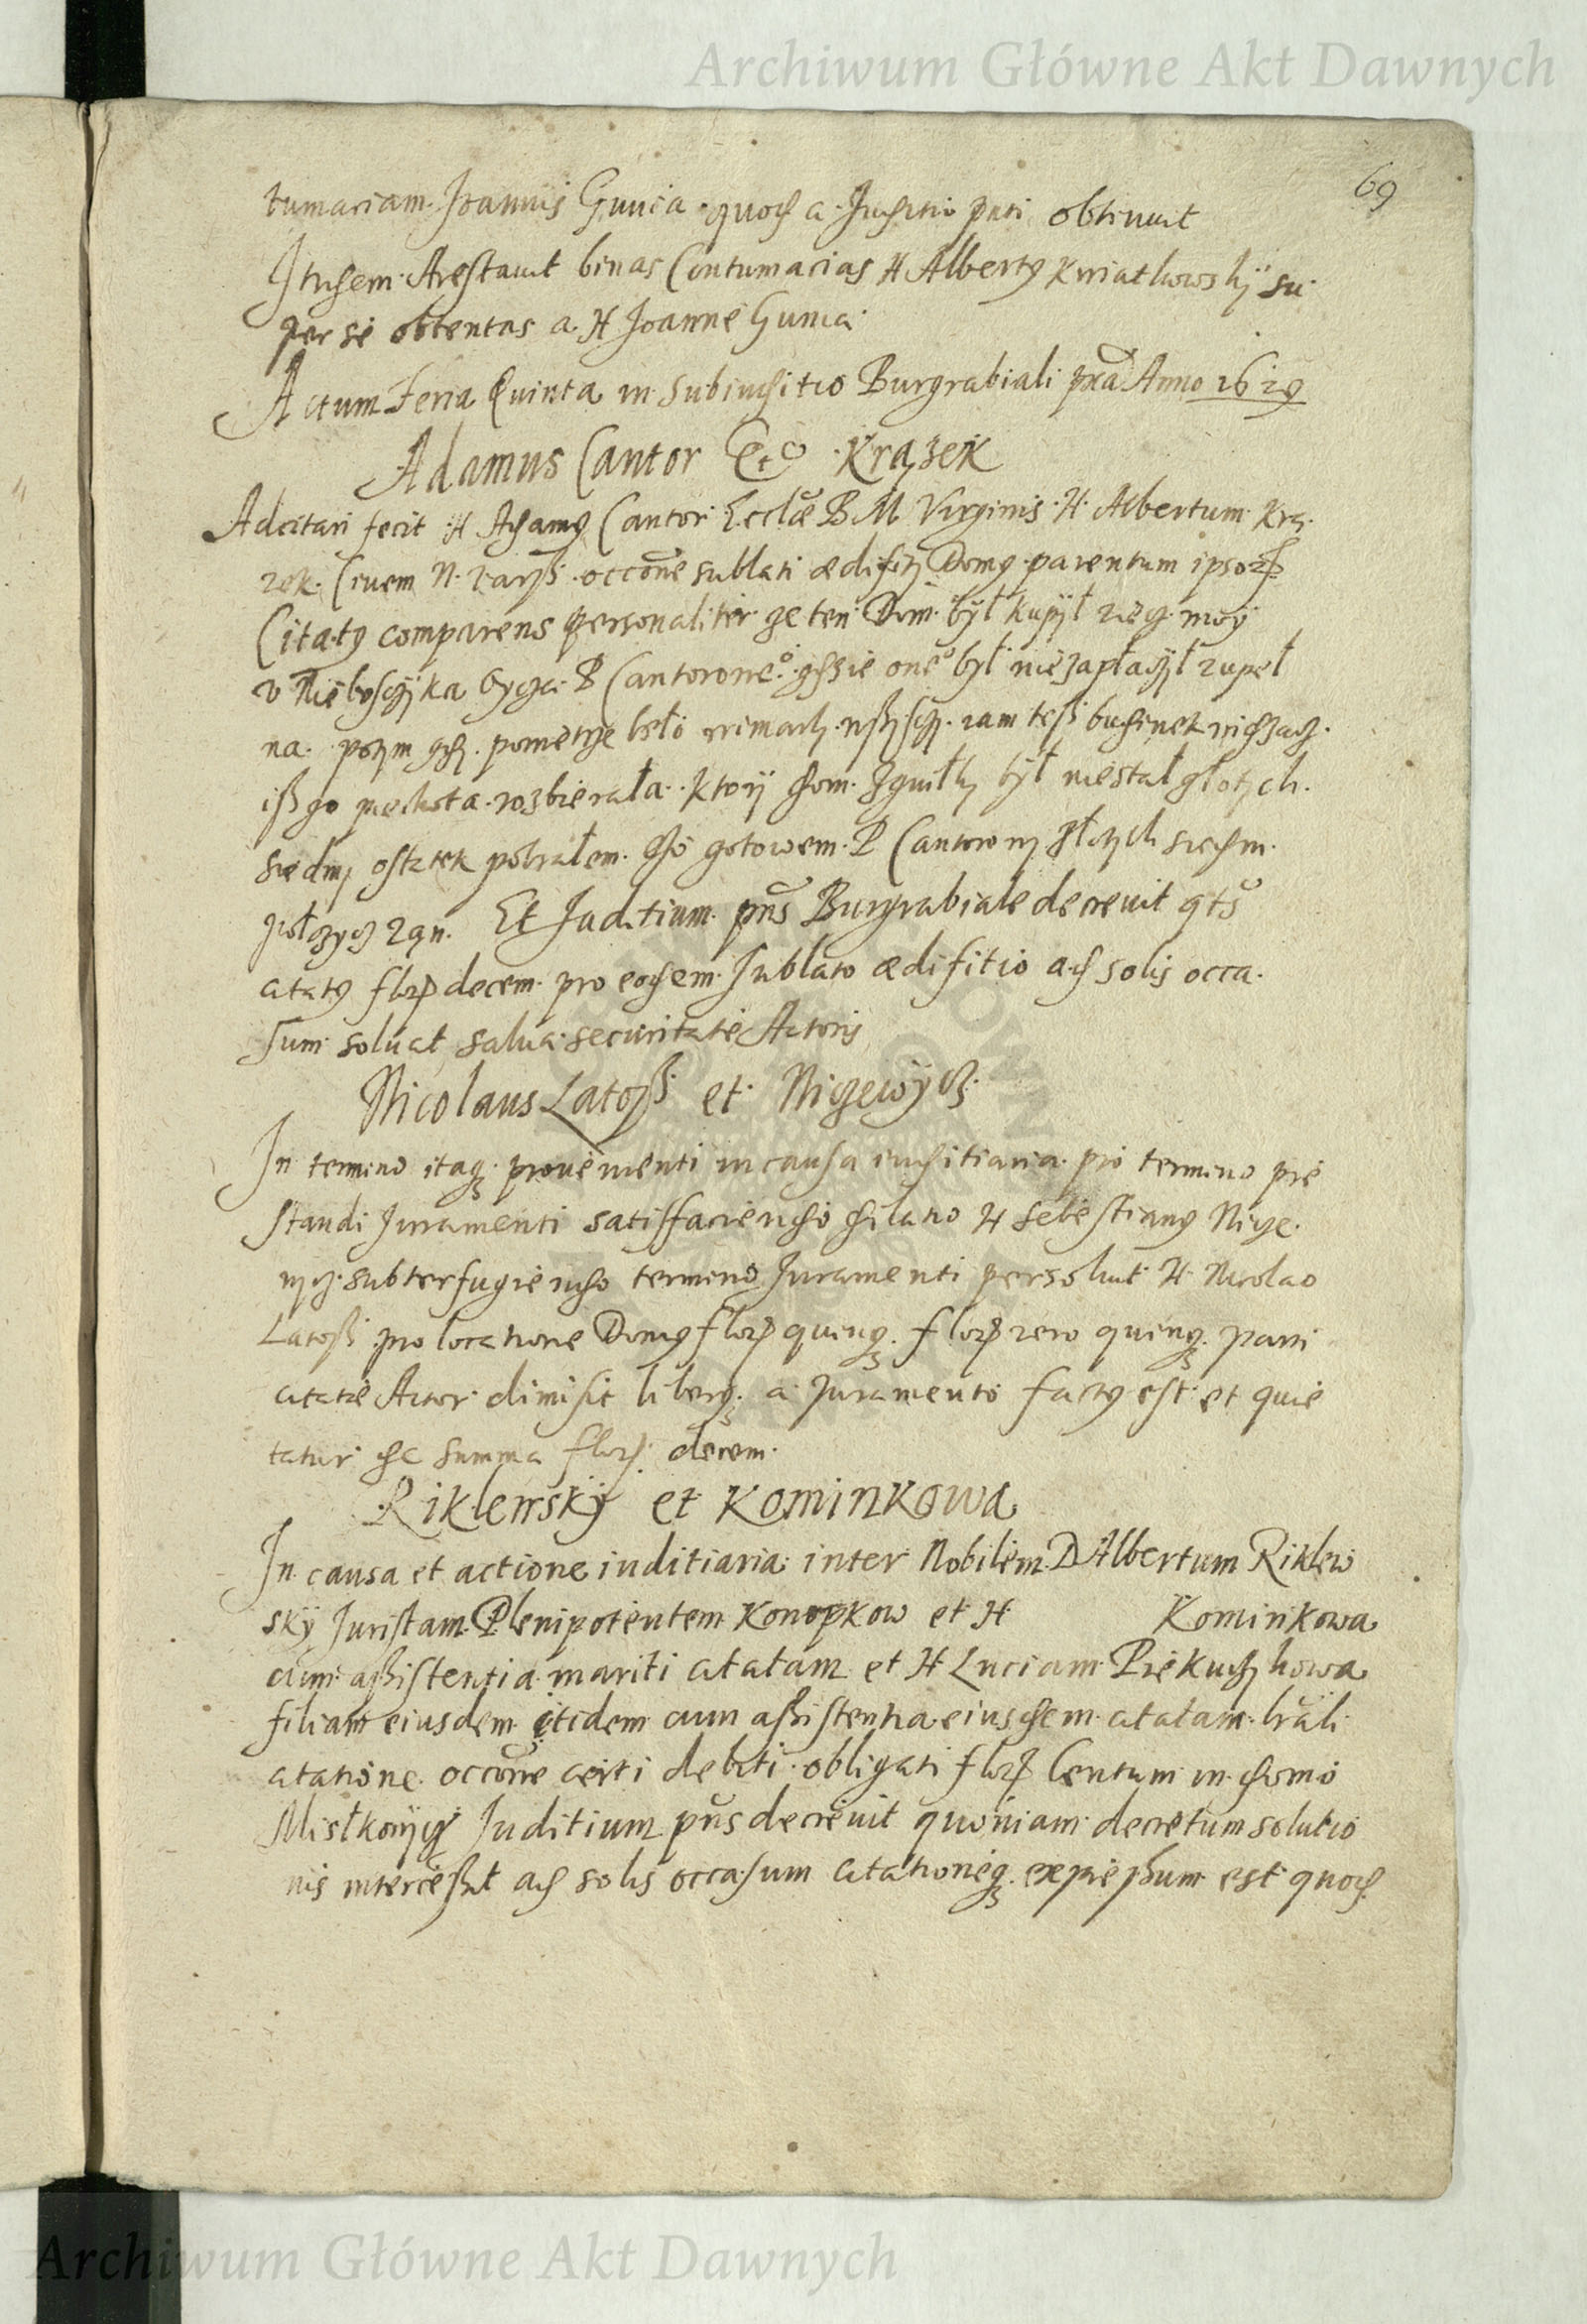 Archiwum Główne Akt Dawnych
69
tumaciam Joannis Gunia quod a Juditio pnti obtinuit
Itidem Arestauit binas Contumacias H Albertus Kwiatkowskÿ su
per se obtentas a H Joanne Gunia
Actum Feria Quinta in Subiuditio Burgrabiali pxa Anno 1629
Adamus Cantor Et Krązek
Adcitari fecit H Adamus Cantor Ecclæ B M Virginis H Albertum Krą
zek Ciuem N occone sublati ædifitij Domus parentum ipsor
Citatus comparens personaliter ze ten Dom był kupÿł moÿ
v Nieboscżÿka oÿcza P Cantorowego gdzie onego był niezapłaczÿł zupeł
na potym gdÿ powietrze było
iż go piechota rozbierała ktorÿ dom zgniłÿ był niestał złotÿch
siedmÿ ostatek pobrałem do gotowem P Cantorowÿ złotÿch siedm
Et Juditium pns Burgrabiale decreuit qts
citatus flor decem pro eodem sublato ædifitio ad solis occa
sum soluat salua securitate Actoris
Nicolaus Latoß et Nizewÿcz
In termino itaq prouenienti in causa iuditiaria pro termino pre
standi Juramenti satisfaciendo dilatio H Sebestianus Nize
wÿcz subterfugiendo termino Juramenti persoluit H Nicolao
Latoß pro locatione Domus flor quinq flor vero quinq parti
citatæ Actor dimisit liberq a Juramento factus est et quie
tatur de summa flor decem
Riklewskÿ et Kominkowa
In causa et actione iuditiaria inter Nobilem D Albertum Riklew
skÿ Juristam Plenipotentem Konopkow et H Kominkowa
cum assistentia mariti citatam et H Luciam Piekuczkowa
filiam eiusdem itidem cum assistentia eiusdem citatam lrali
citatione occone certi debiti obligati flor Centum in domo
Mistkowÿcz Juditium pns decreuit quoniam decretum solutio
nis intercessit ad solis occasum citationeq expressum est quod
Archiwum Główne Akt Dawnych